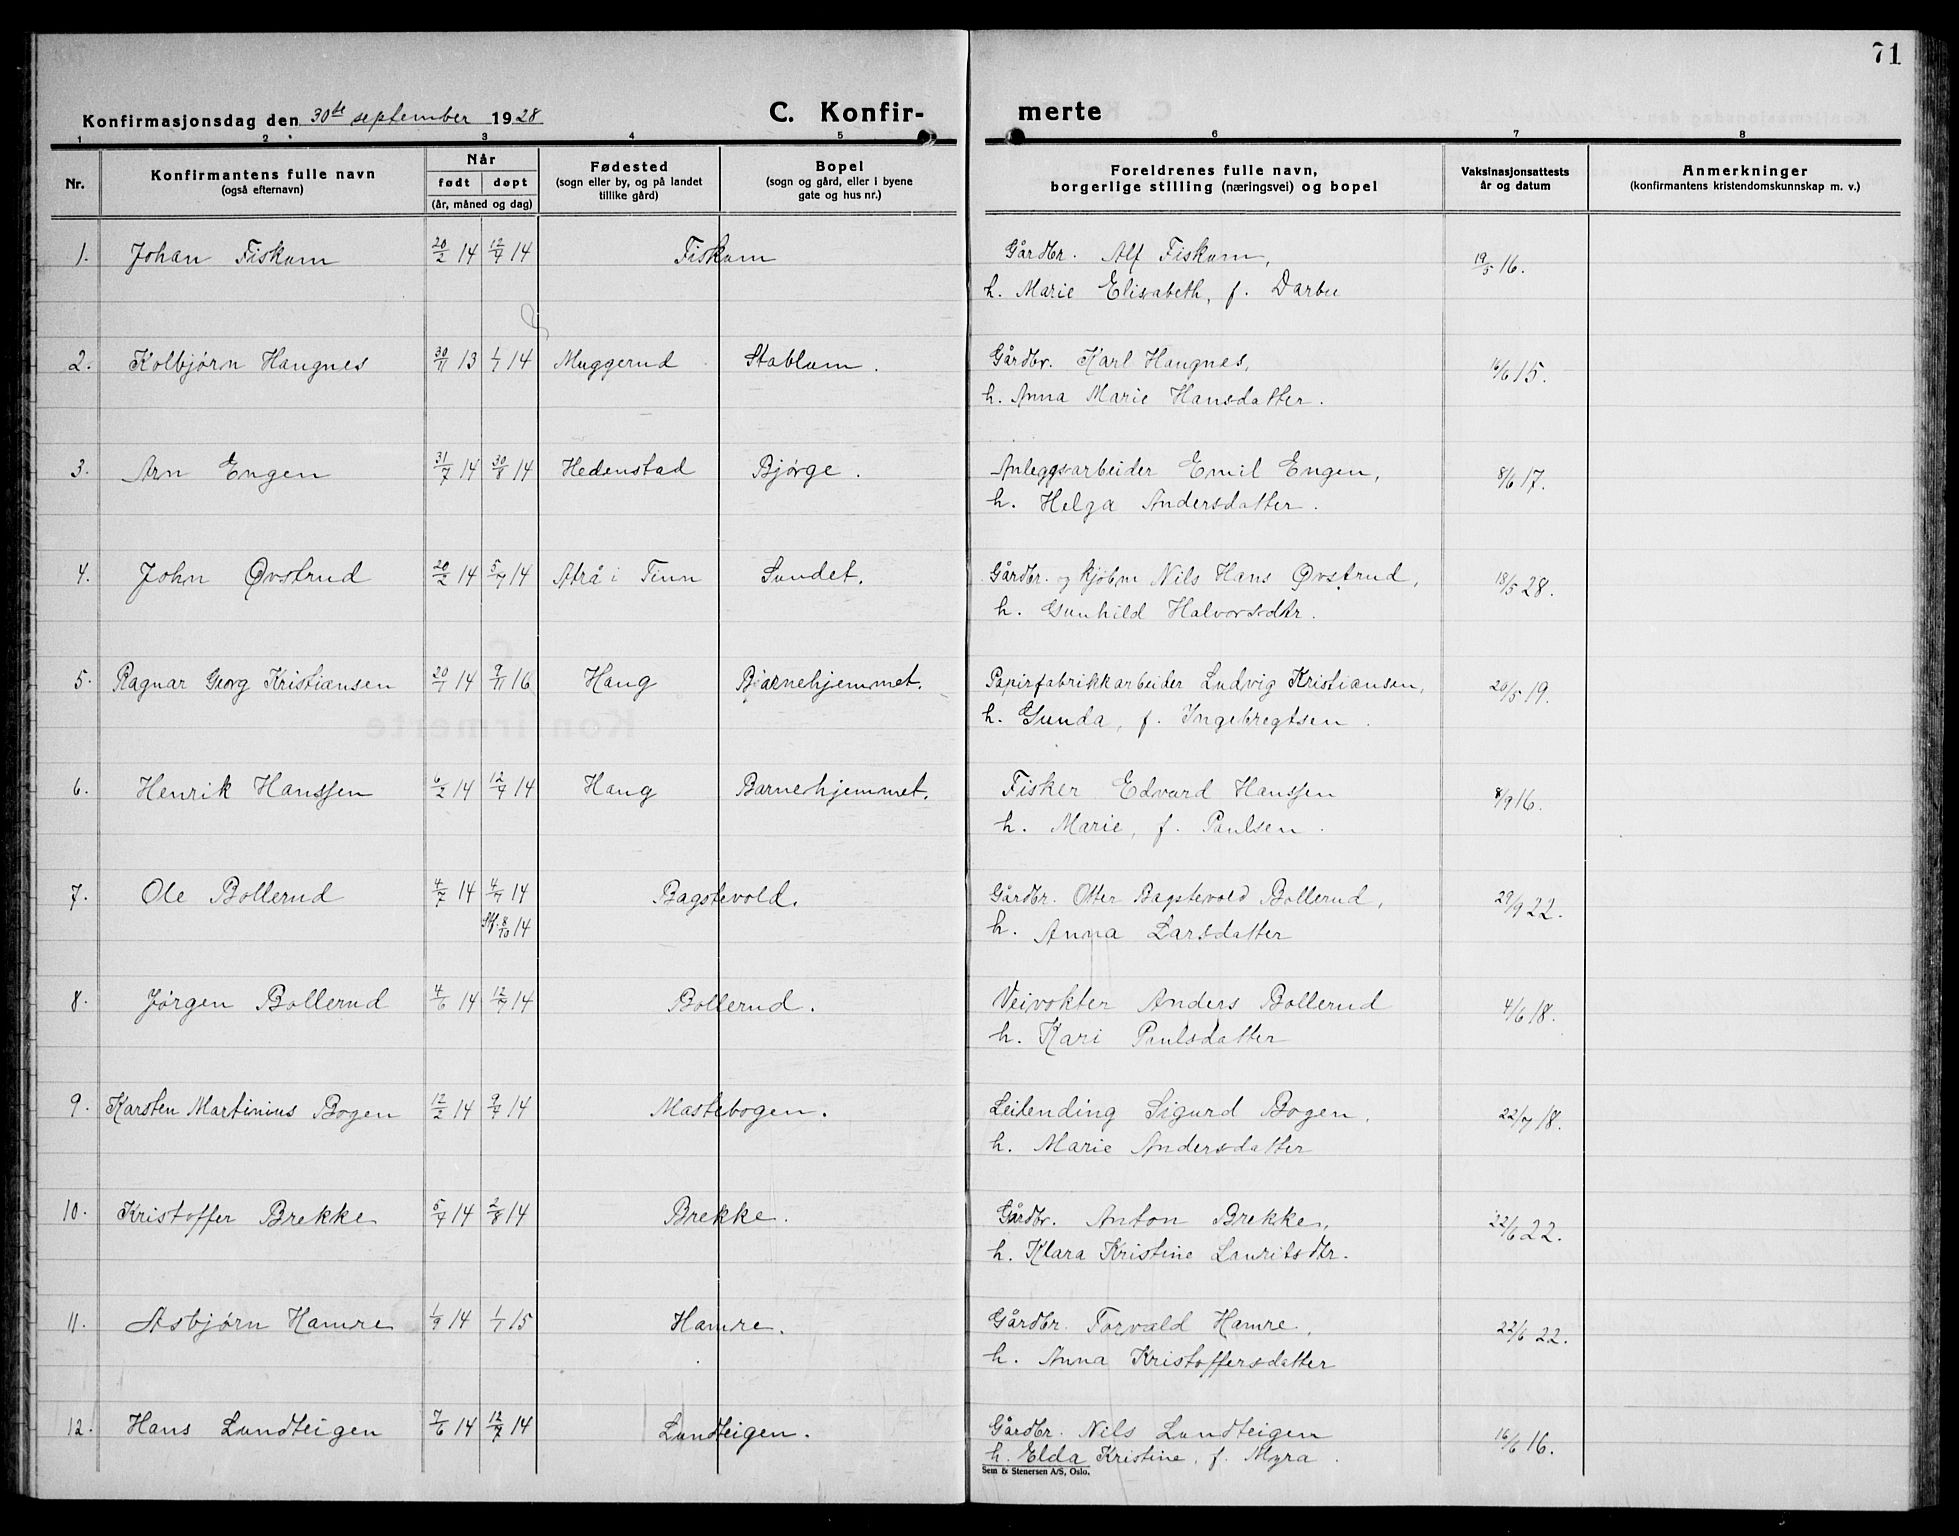 71
Konfirmasjonsdag den 30te september 1928 C. Konfirmerte
1 2 3 4 5 6 7 8
Nr. Konfirmantens fulle navn (også efternavn) Når født døpt (år, måned og dag) Fødested (sogn eller by, og på landet tillike gård) Bopel (sogn og gård, eller i byene gate og hus nr.) Foreldrenes fulle navn, borgerlige stilling (næringsvei) og bopel Vaksinasjonsattests år og datum Anmerkninger (konfirmantens kristendomskunnskap m. v.)
1. Johan Fiskum 20/2 14 12/4 14 Fiskum Gårdbr. Alf Fiskum, 19/5 16.
h. Marie Elisabeth, f. Darbu
2. Kolbjørn Haugnes 30/11 13 1/1 14 Muggerud Stablum. Gårdbr. Karl Haugnes, 16/6 15.
h. Anna Marie Hansdatter.
3. Arn Engen 31/7 14 30/8 14 Hedenstad Bjørge. Anleggsarbeider Emil Engen, 8/6 17.
h. Helga Andersdatter.
4. John Øvstrud 20/2 14 5/7 14 Atrå i Tinn Sundet. Gårdbr. og kjøbm Nils Hans Øvstrud, 18/5 28.
h. Gunhild Halvorsdtr.
5. Ragnar Georg Kristiansen 20/1 14 9/11 16 Haug Barnehjemmet. Papirfabrikkarbeider Ludvig Kristiansen, 20/5 19.
h. Gunda, f. Ingebregtsen.
6. Henrik Hanssen 6/2 14 12/4 14 Haug Barnehjemmet. Fisker Edvard Hanssen 8/9 16.
h. Marie, f. Paulsen.
7. Ole Bollerud 4/7 14 4/7 14 Bagstevold. Gårdbr. Otter Bagstevold Bollerud, 29/9 22.
8/10 14 h. Anna Larsdatter
8. Jørgen Bollerud 4/6 14 12/7 14 Bollerud. Veivokter Anders Bollerud 4/6 18.
h. Kari Paulsdatter
9. Karsten Martinius Bogen 12/2 14 9/4 14 Mastebogen. Leilending Sigurd Bogen, 22/7 18.
h. Marie Andersdatter
10. Kristoffer Brekke 5/7 14 2/8 14 Brekke. Gårdbr. Anton Brekke, 22/6 22.
h. Klara Kristine Lauritsdtr.
11. Asbjørn Hamre 1/9 14 1/1 15 Hamre. Gårdbr. Torvald Hamre, 22/6 22.
h. Anna Kristoffersdatter
12. Hans Lundteigen 7/6 14 12/7 14 Lundteigen. Gårdbr. Nils Lundteigen 16/6 16.
h. Elda Kristine, f. Myra.
Sem & Stenersen A/S, Oslo.